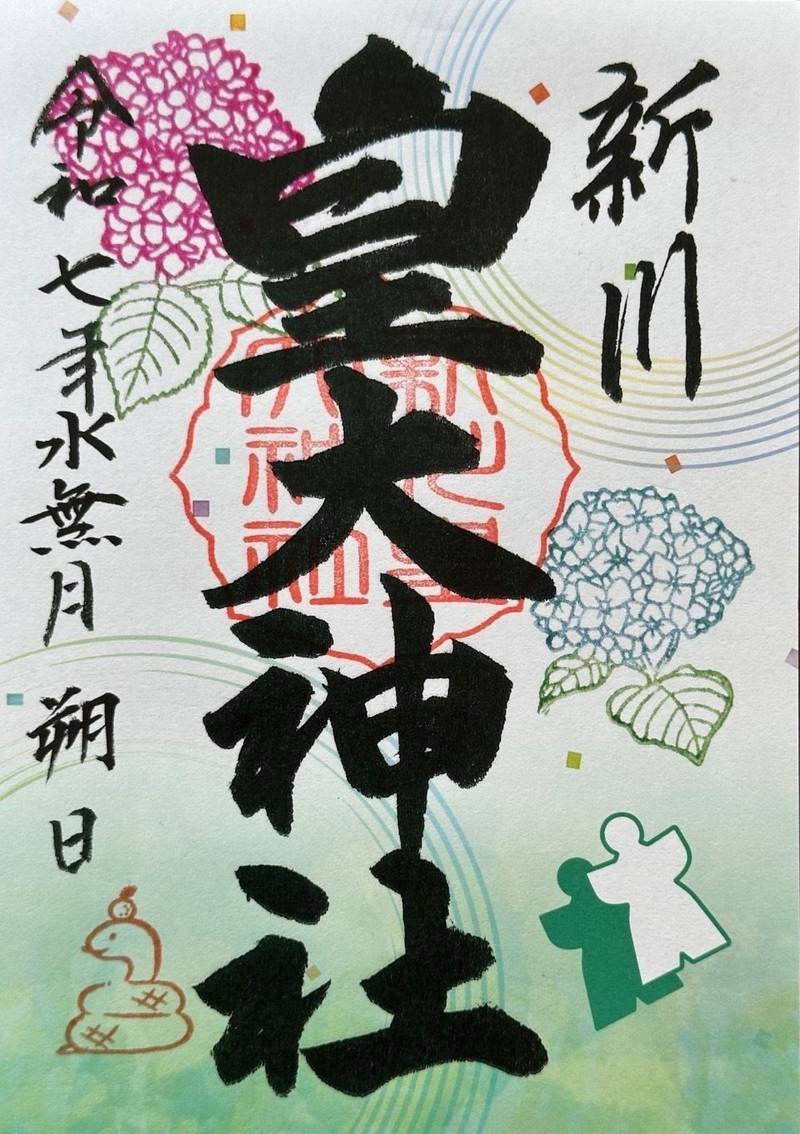 新川
皇大神社
令和七年水無月 朔日
新川皇
大神社